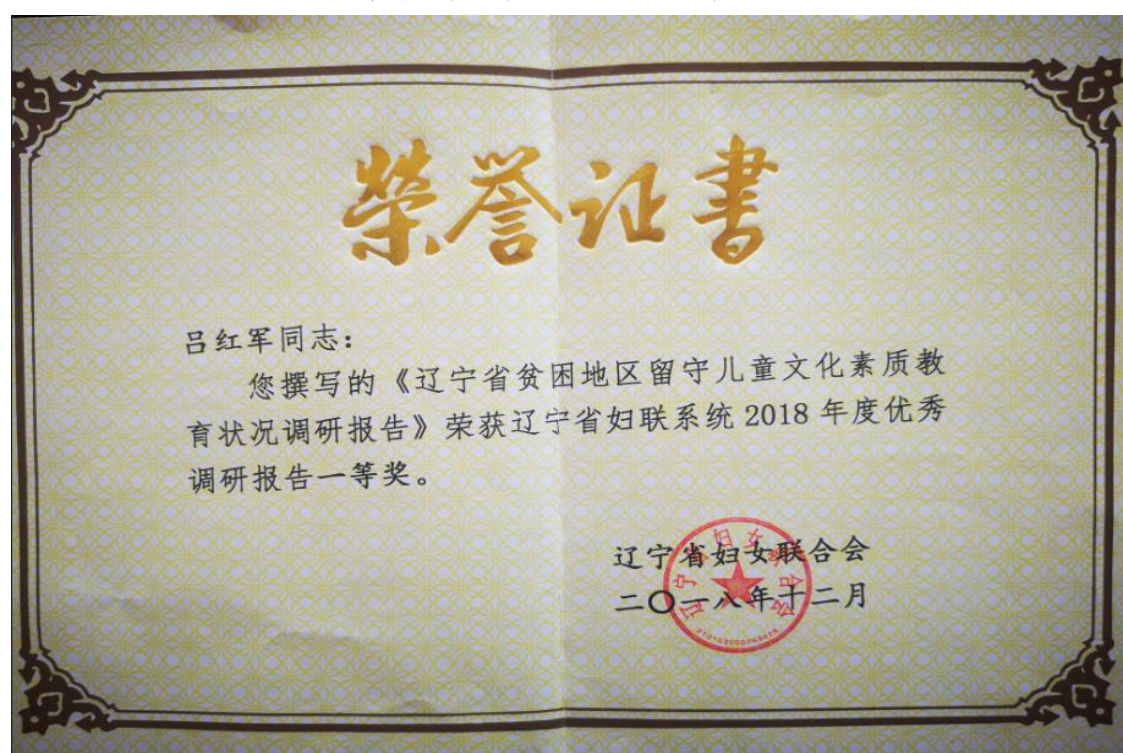 荣誉证书
吕红军同志：
您撰写的《辽宁省贫困地区留守儿童文化素质教
育状况调研报告》荣获辽宁省妇联系统 2018 年度优秀
调研报告一等奖。
辽宁省妇女联合会
二〇一八年十二月
辽宁省妇女联合会